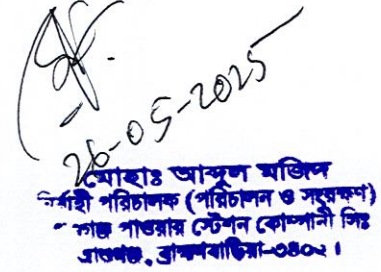 26-05-2025
মোহাঃ আব্দুল মজিদ
নির্বাহী পরিচালক (পরিচালন ও সংরক্ষণ)
পাওয়ার স্টেশন কোম্পানী লিঃ
আশুগঞ্জ, ব্রাহ্মণবাড়িয়া-৩৪০২।